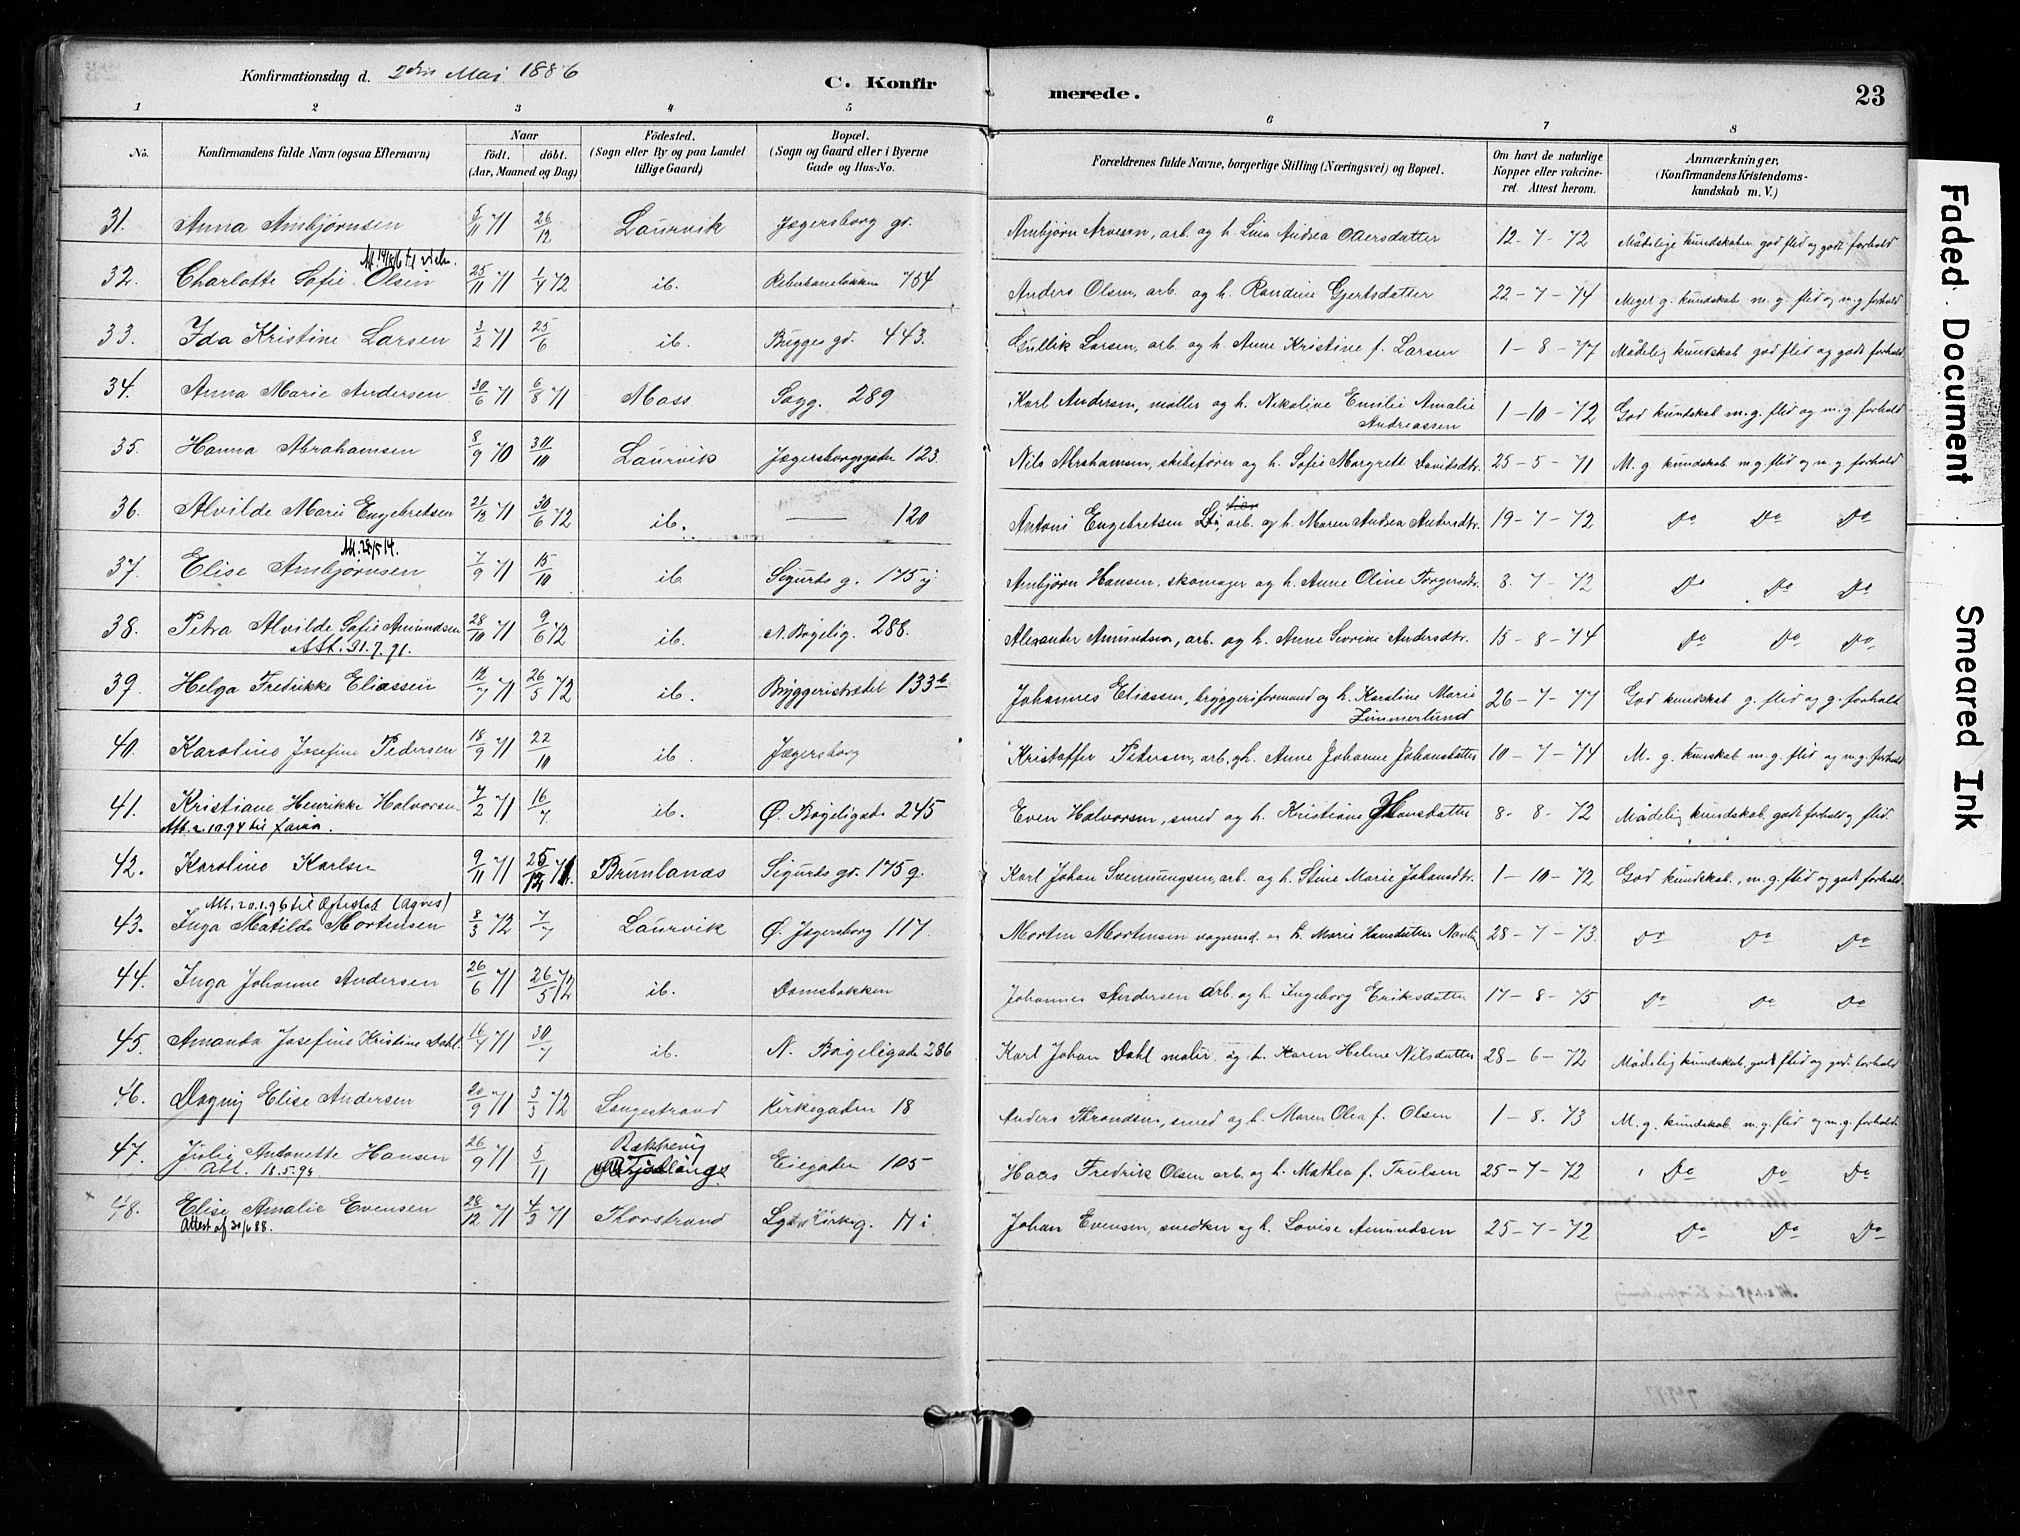 Konfirmationsdag d. 2den Mai 1886
C. Konfirmerede.
23
1 2 3 4 5 6 7 8
No. Konfirmandens fulde Navn (ogsaa Efternavn) Naar født. døbt. (Aar, Maaned og Dag) Födested. (Sogn eller By og paa Landet tillige Gaard) Bopæl. (Sogn og Gaard eller i Byerne Gade og Hus-No. Forældrenes fulde Navne, borgerlige Stilling (Næringsvei) og Bopæl. Om havt de naturlige Kopper eller vakcineret. Attest herom. Anmærkninger, (Konfirmandens Kristendomskundskab m. V.)
31. Anna Ambjørnsen 5/11 71 26/12 Laurvik Jægersborg gd. Ambjørn Arvesen, arb. og h. Lina Andrea Ottersdatter 12-7-72 Mådelige kundskaber god flid og godt forhold
32. Charlotte Sofie Olsen 25/11 71 1/4 72 ib. Reberbanebakken 754 Anders Olsen, arb. og h. Randine Gjertsdatter 22-7-74 Meget g. kundskab m. g. flid og m. g. forhold
33. Ida Kristine Larsen 3/2 71 25/6 ib. Bugges gd. 443. Gullik Larsen, arb. og h. Anne Kristine f. Larsen 1-8-77 Mådelig kundskab god flid og godt forhold
34. Anna Marie Andersen 30/6 71 6/8 71 Moss Sagg. 289 Karl Andersen, møller og h. Nikoline Emilie Amalie Andreassen 1-10-72 God kundskab m. g. flid og m. g. forhold
35. Hanna Abrahamsen 8/9 70 30/10 Laurvik Jægersborggaden 123. Nils Abrahamsen, skibsfører og h. Sofie Margrett Davidsdtr. 25-5-71 M. g. kundskab m. g. flid og m. g. forhold
36. Alvilde Marie Engebretsen 21/12 71 30/6 72 ib. — 120 Antoni Engebretsen arb. og h. Maren Andrea Andersdtr. 19-7-72 Do Do Do
37. Elise Ambjørnsen Att. 28/5 14. 7/9 71 15/10 ib Sigurds g. 175 ij Ambjørn Hansen, skomager og h. Anne Oline Torgersdtr. 3-7-72 Do Do Do
38. Petra Alvilde Sofie Amundsen 28/10 71 9/6 72 ib. N. Bøgelig. 288. Alexander Amundsen, arb. og h. Anne Severine Andersdtr. 15-8-74 Do Do Do
Att. 21.7.91.
39. Helga Fredrikke Eliassen 12/7 71 26/5 72 ib. Bryggeristrædet 133b Johannes Eliassen, bryggeriformand og h. Karoline Marie Zimmerlund 26-7-77 God kundskab g. flid og g. forhold
40. Karoline Josefine Pedersen 18/9 71 22/10 ib. Jægersborg Kristoffer Pedersen, arb. og h. Anne Johanne Johansdatter 10-7-74 M. g. kundskab m. g. flid og m. g. forhold
41. Kristiane Henrikke Halvorsen 7/2 71 16/7 ib. Ø. Bøgeligade 245 Even Halvorsen, smed og h. Kristiane Hansdatter 8-8-72 Mådelig kundskab, godt forhold og flid.
42. Karoline Karlsen 9/11 71 25/12 71. Brunlanæs Sigurds gd. 175 g. Karl Johan Svennungsen, arb. og h. Stine Marie Johansdtr. 1-10-72 God kundskab, m. g. flid og godt forhold.
43. Inga Matilde Mortensen 8/3 72 7/7 Laurvik Ø. Jægersborg 117. Morten Mortensen vognmd. og h. Marie Hansdatter 28-7-73. Do Do Do
44. Inga Johanne Andersen 26/6 71 26/5 72 ib. Damsbakken Johannes Andersen arb. og h. Ingeborg Eriksdatter 17-8-75 Do Do Do
45. Amanda Josefine Kristine Dahl. 16/4 71 30/7 ib. N. Bøgeligade 286 Karl Johan Dahl maler og h. Karen Helene Nilsdatter 28-6-72 Mådelig kundskab, godt flid og god. forhold
46. Dagny Elise Andersen 20/9 71 3/3 72 Langestrand Kirkegaden 18 Anders Throndsen, smed og h. Maren Olea f. Olsen 1-8-73 M. g. kundskab m. g. flid og m. g. forhold
47. Julie Antonette Hansen 26/9 71 5/11 Rækkevig Eiegaden 105 Haas Fredrik Olsen arb. og h. Mathea f. Trulsen 25-7-72 Do Do Do
48. Elise Amalie Evensen 28/12 71 Thorstrand Kirkeg. 17 i Johan Evensen, snedker og h. Lovise Amundsen 25-7-72 Do Do Do
Attest af 30/6 88.
Faded Document
Smeared Ink